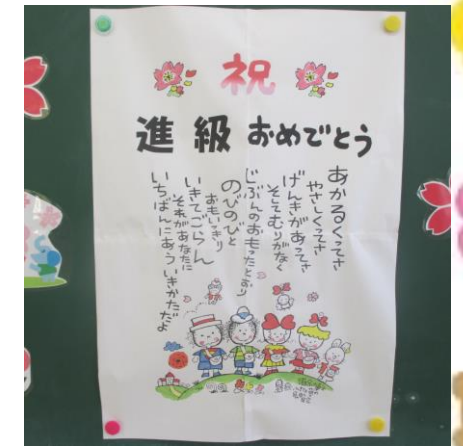 祝
進級おめでとう
あかるくってさ
やさしくってさ
げんきがあってさ
そしてむりがなく
じぶんのおもったとおり
のびのびと
おもいっきり
いきてごらん
それがあなたに
いちばんにあういきかただよ